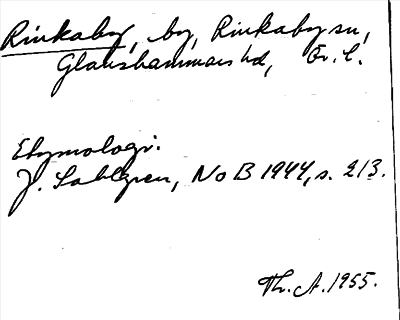 Rinkaby, by, Rinkaby sn,
Glanshammars hd, Ör. l.
Etymologi:
J. Sahlgren, NoB 1944, s. 213.
Th. A. 1955.